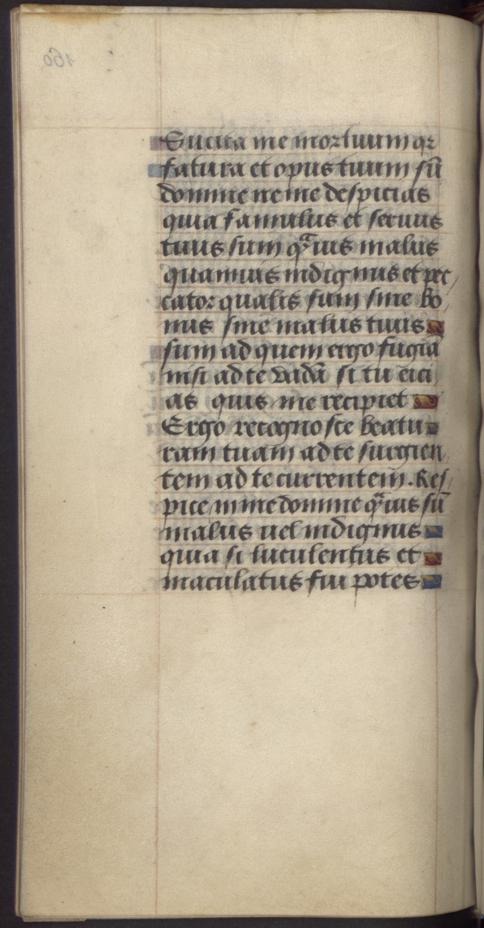 Sucita me mortuum qr
fatura et opus tuum sū
domine ne me despicias
quia famulus et seruus
tuus sum qᵃuis malus
quamuis indignus et pec
cator qualis sum siue bo
nus siue malus tuus
sum ad quem ergo fugiā
nisi ad te vadā si tu eici
as quis me recipiet
Ergo recognosce beatu
ram tuam ad te surgien
tem ad te currentem. Res
pice in me domine qᵃuis sū
malus uel indignus
quia si luculentus et
maculatus fui potes